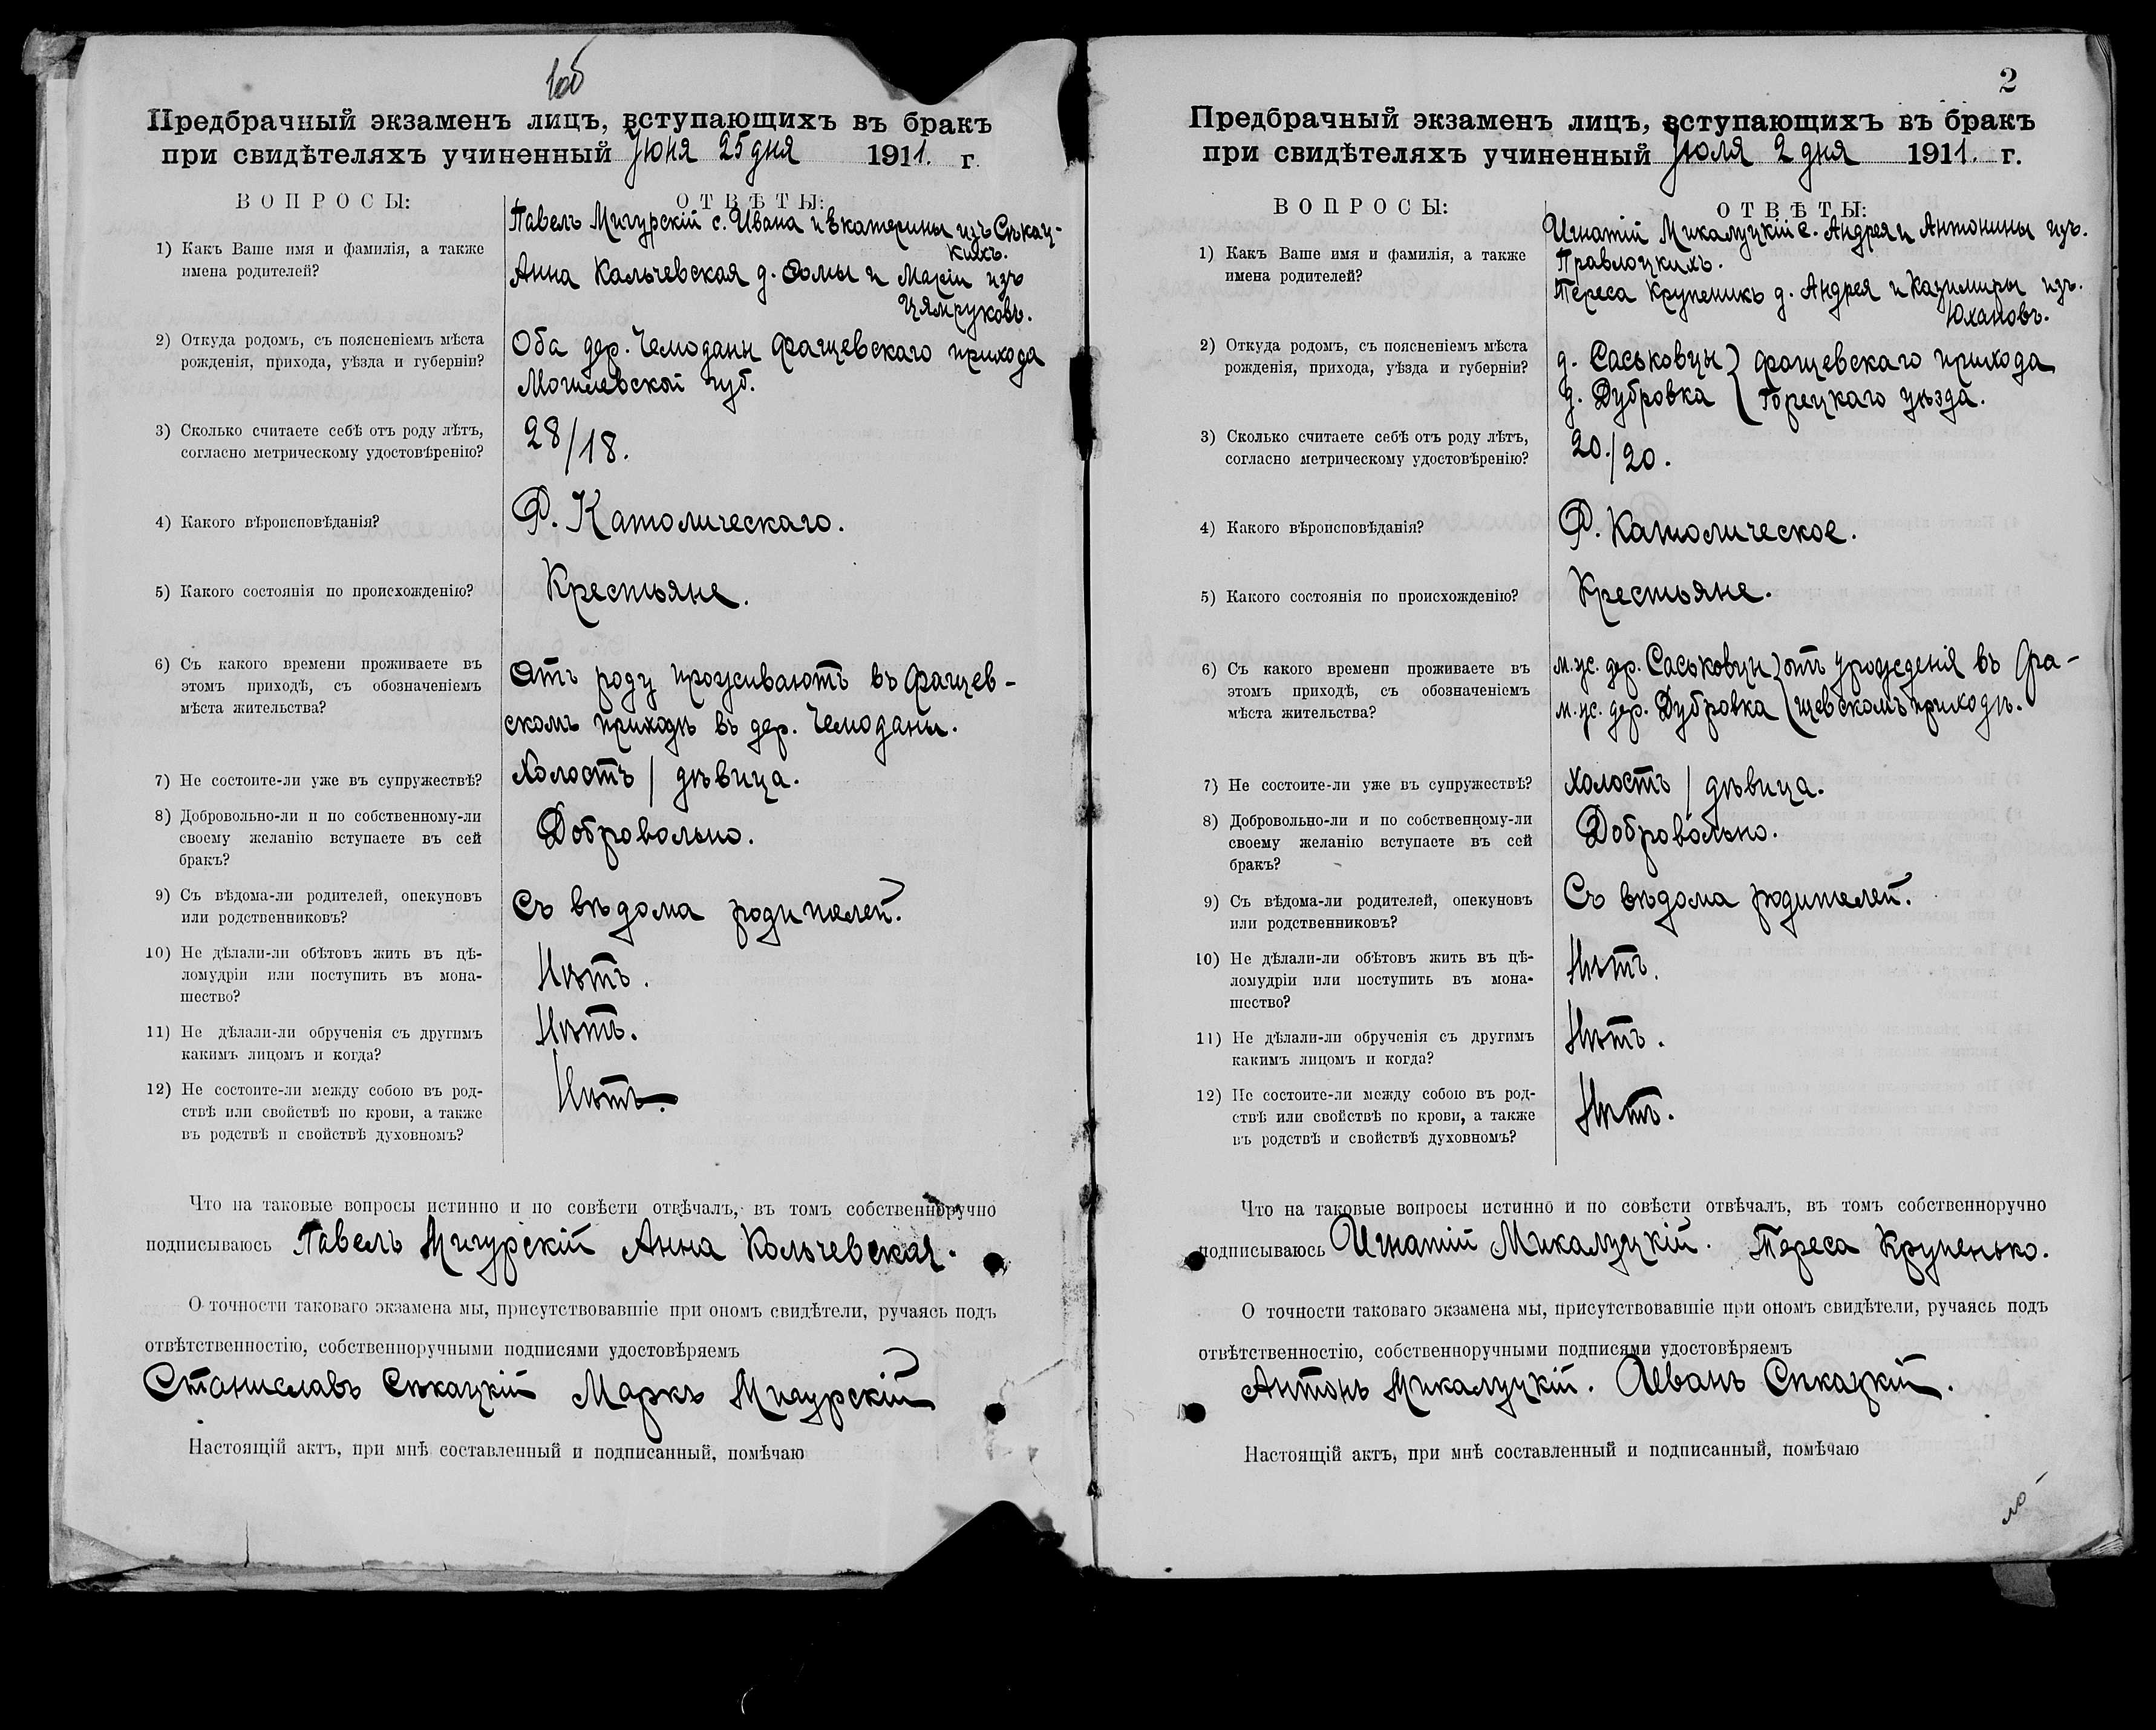 1об
Предбрачный экзаменъ лицъ, вступающихъ въ бракъ
при свидѣтеляхъ учиненный Іюня 25 дня 1911. г.
ВОПРОСЫ:
ОТВѢТЫ:
1) Какъ Ваше имя и фамилія, а также
имена родителей?
Павелъ Мигурскій с. Ивана и Екатерины изъ Сѣкац-
кихъ.
Анна Кальчевская д. Ѳомы и Маріи изъ
Цямруковъ.
2) Откуда родомъ, съ поясненіемъ мѣста
рожденія, прихода, уѣзда и губерніи?
Оба дер. Чемоданы Фащевскаго прихода
Могилевской губ.
3) Сколько считаете себѣ отъ роду лѣтъ,
согласно метрическому удостовѣренію?
28/18.
4) Какого вѣроисповѣданія?
Р. Католическаго.
5) Какого состоянія по происхожденію?
Крестьяне.
6) Съ какого времени проживаете въ
этомъ приходѣ, съ обозначеніемъ
мѣста жительства?
Отъ роду проживаютъ въ Фащев-
скомъ приходѣ въ дер. Чемоданы.
7) Не состоите-ли уже въ супружествѣ?
Холостъ / дѣвица.
8) Добровольно-ли и по собственному-ли
своему желанію вступаете въ сей
бракъ?
Добровольно.
9) Съ вѣдома-ли родителей, опекуновъ
или родственниковъ?
Съ вѣдома родителей.
10) Не дѣлали-ли обѣтовъ жить въ цѣ-
ломудріи или поступить въ мона-
шество?
Нѣтъ.
11) Не дѣлали-ли обрученія съ другимъ
какимъ лицомъ и когда?
Нѣтъ.
12) Не состоите-ли между собою въ род-
ствѣ или свойствѣ по крови, а также
въ родствѣ и свойствѣ духовномъ?
Нѣтъ.
Что на таковые вопросы истинно и по совѣсти отвѣчалъ, въ томъ собственноручно
подписываюсь Павелъ Мигурскій Анна Кольчевская.
О точности таковаго экзамена мы, присутствовавшіе при ономъ свидѣтели, ручаясь подъ
отвѣтственностію, собственноручными подписями удостовѣряемъ
Станиславъ Сѣкацкій Маркъ Мигурскій
Настоящій актъ, при мнѣ составленный и подписанный, помѣчаю
2
Предбрачный экзаменъ лицъ, вступающихъ въ бракъ
при свидѣтеляхъ учиненный Іюля 2 дня 1911. г.
ВОПРОСЫ:
ОТВѢТЫ:
1) Какъ Ваше имя и фамилія, а также
имена родителей?
Игнатій Микалуцкій с. Андрея и Антонины изъ.
Правлоцкихъ.
Тереса Крупеникъ д. Андрея и Казимиры изъ.
Юхановъ.
2) Откуда родомъ, съ поясненіемъ мѣста
рожденія, прихода, уѣзда и губерніи?
д. Саськовцы } Фащевскаго прихода
д. Дубровка } Горецкаго уѣзда.
3) Сколько считаете себѣ отъ роду лѣтъ,
согласно метрическому удостовѣренію?
20./20.
4) Какого вѣроисповѣданія?
Р. Католическое.
5) Какого состоянія по происхожденію?
Крестьяне.
6) Съ какого времени проживаете въ
этомъ приходѣ, съ обозначеніемъ
мѣста жительства?
м. ж. дер. Саськовцы } отъ урожденія въ Фа-
м. ж. дер. Дубровка } щевскомъ приходѣ.
7) Не состоите-ли уже въ супружествѣ?
Холостъ / дѣвица.
8) Добровольно-ли и по собственному-ли
своему желанію вступаете въ сей
бракъ?
Добровольно.
9) Съ вѣдома-ли родителей, опекуновъ
или родственниковъ?
Съ вѣдома родителей.
10) Не дѣлали-ли обѣтовъ жить въ цѣ-
ломудріи или поступить въ мона-
шество?
Нѣтъ.
11) Не дѣлали-ли обрученія съ другимъ
какимъ лицомъ и когда?
Нѣтъ.
12) Не состоите-ли между собою въ род-
ствѣ или свойствѣ по крови, а также
въ родствѣ и свойствѣ духовномъ?
Нѣтъ.
Что на таковые вопросы истинно и по совѣсти отвѣчалъ, въ томъ собственноручно
подписываюсь Игнатій Микалуцкій. Тереса Крупенько.
О точности таковаго экзамена мы, присутствовавшіе при ономъ свидѣтели, ручаясь подъ
отвѣтственностію, собственноручными подписями удостовѣряемъ
Антонъ Микалуцкій. Иванъ Сикацкій.
Настоящій актъ, при мнѣ составленный и подписанный, помѣчаю